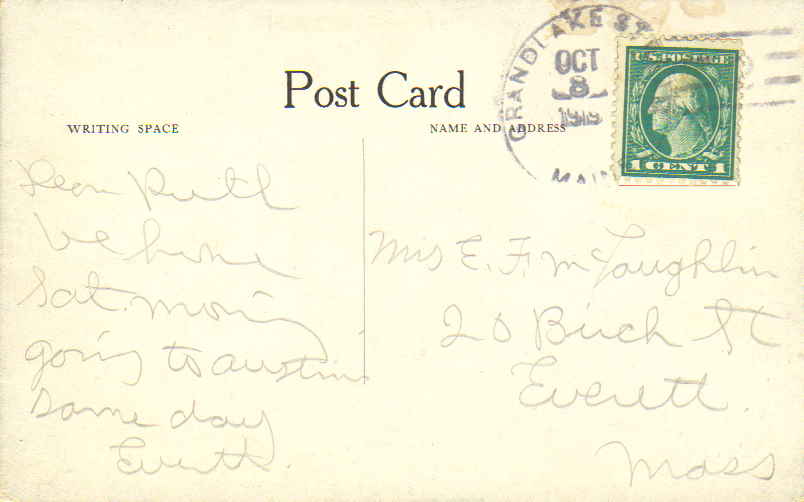 Post Card
WRITING SPACE
NAME AND ADDRESS
GRAND LAKE ST
OCT
8
MAINE
U.S. POSTAGE
1 CENT 1
Dear Ruth
be home
Sat. morning
going to austin
same day
Mrs E. F. McLaughlin
20 Birch St
Everett.
Mass